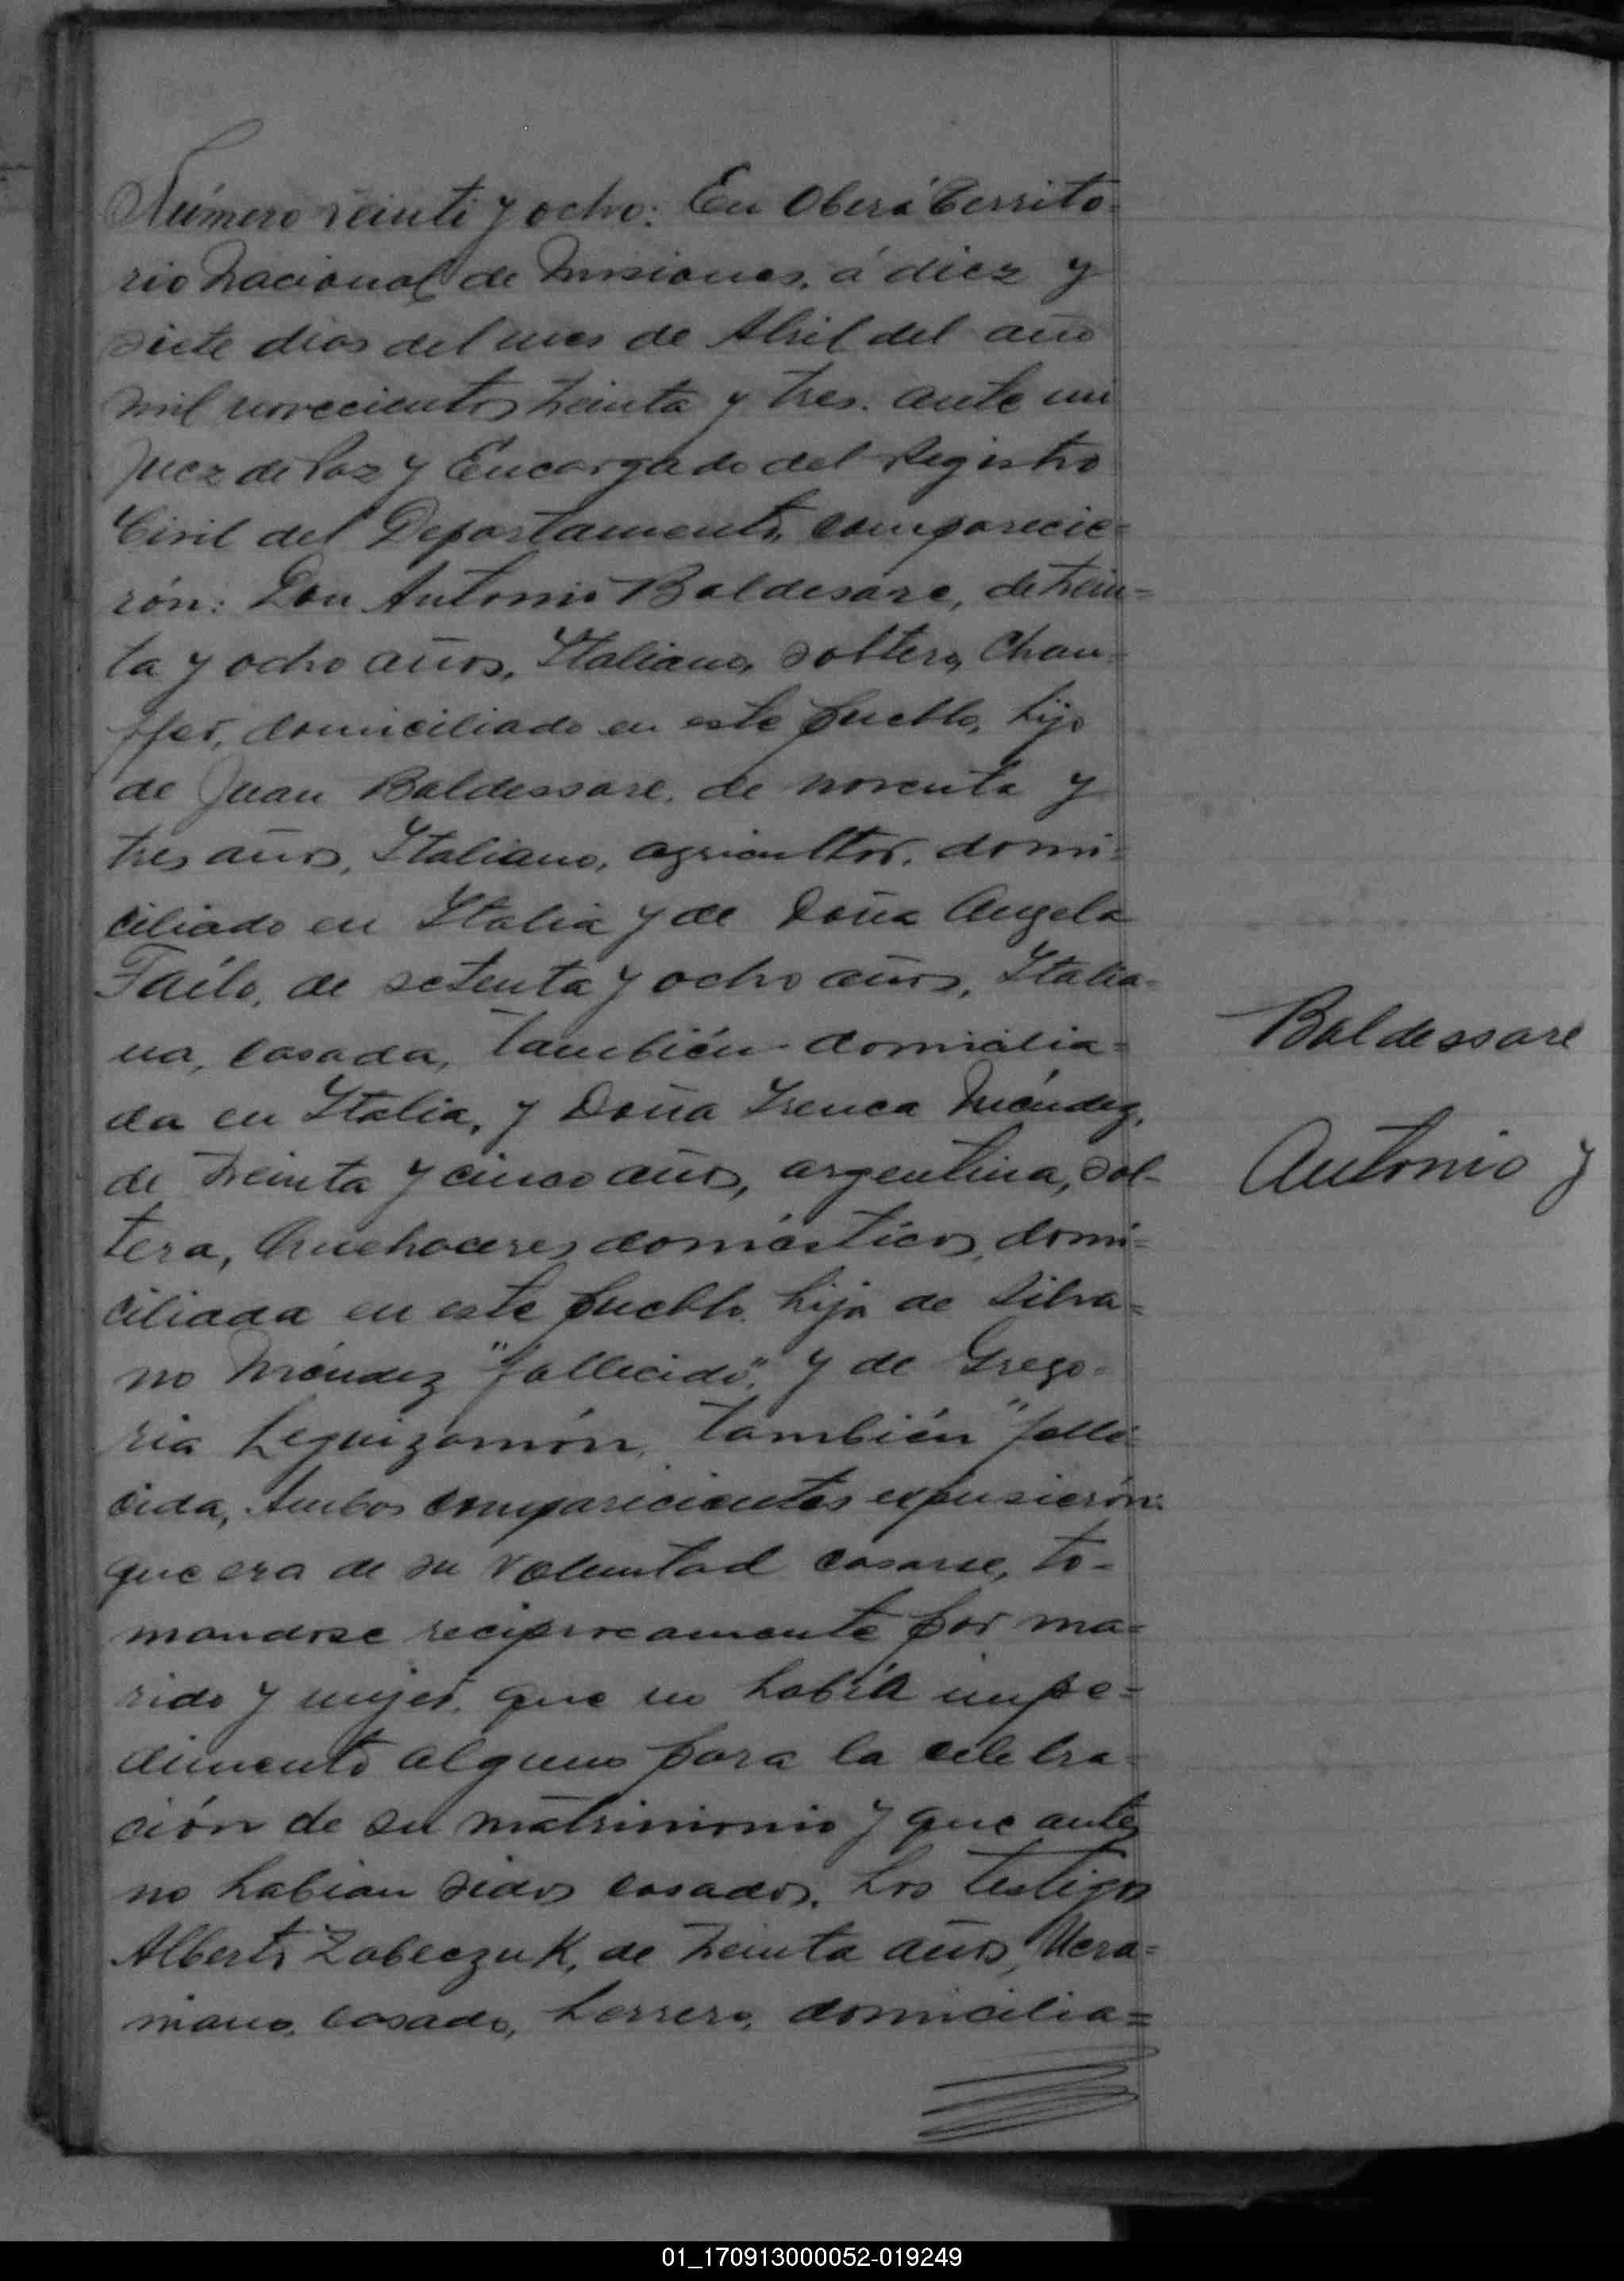 Número veinti y ocho: En Oberá Territo-
rio Nacional de Misiones, á diez y
siete dias del mes de Abril del año
mil novecientos treinta y tres. ante mi
Juez de Paz y Encargado del Registro
Civil del Departamento, comparecie=
rón: Don Antonio Baldesare, de trein=
ta y ocho años, Italiano, soltero, Chau=
ffer, domiciliado en este pueblo, hijo
de Juan Baldessare, de noventa y
tres años, Italiano, agricultor, domi=
ciliado en Italia y de Doña Angela
de setenta y ocho años, Italia=
na, casada, también domicilia=
da en Italia, y Doña Irenea Méndez,
de treinta y cinco años, argentina, sol-
tera, Quehaceres domésticos, domi=
ciliada en este pueblo, hija de Silva=
no Méndez "fallecido", y de Grego=
ria Leguizamón, también "falle=
cida, Ambos comparecientes expusierón:
que era de su voluntad casarse, to-
mandose reciprocamente por ma=
rido y mujer, que no habia impe=
dimento alguno para la celebra=
ción de su matrimonio y que antes
no habian sidos casados. Los testigos
Alberto Zabeczuk, de treinta años, Ucra=
niano, casado, herrero, domicilia=
Baldessare
Antonio y
01_170913000052-019249